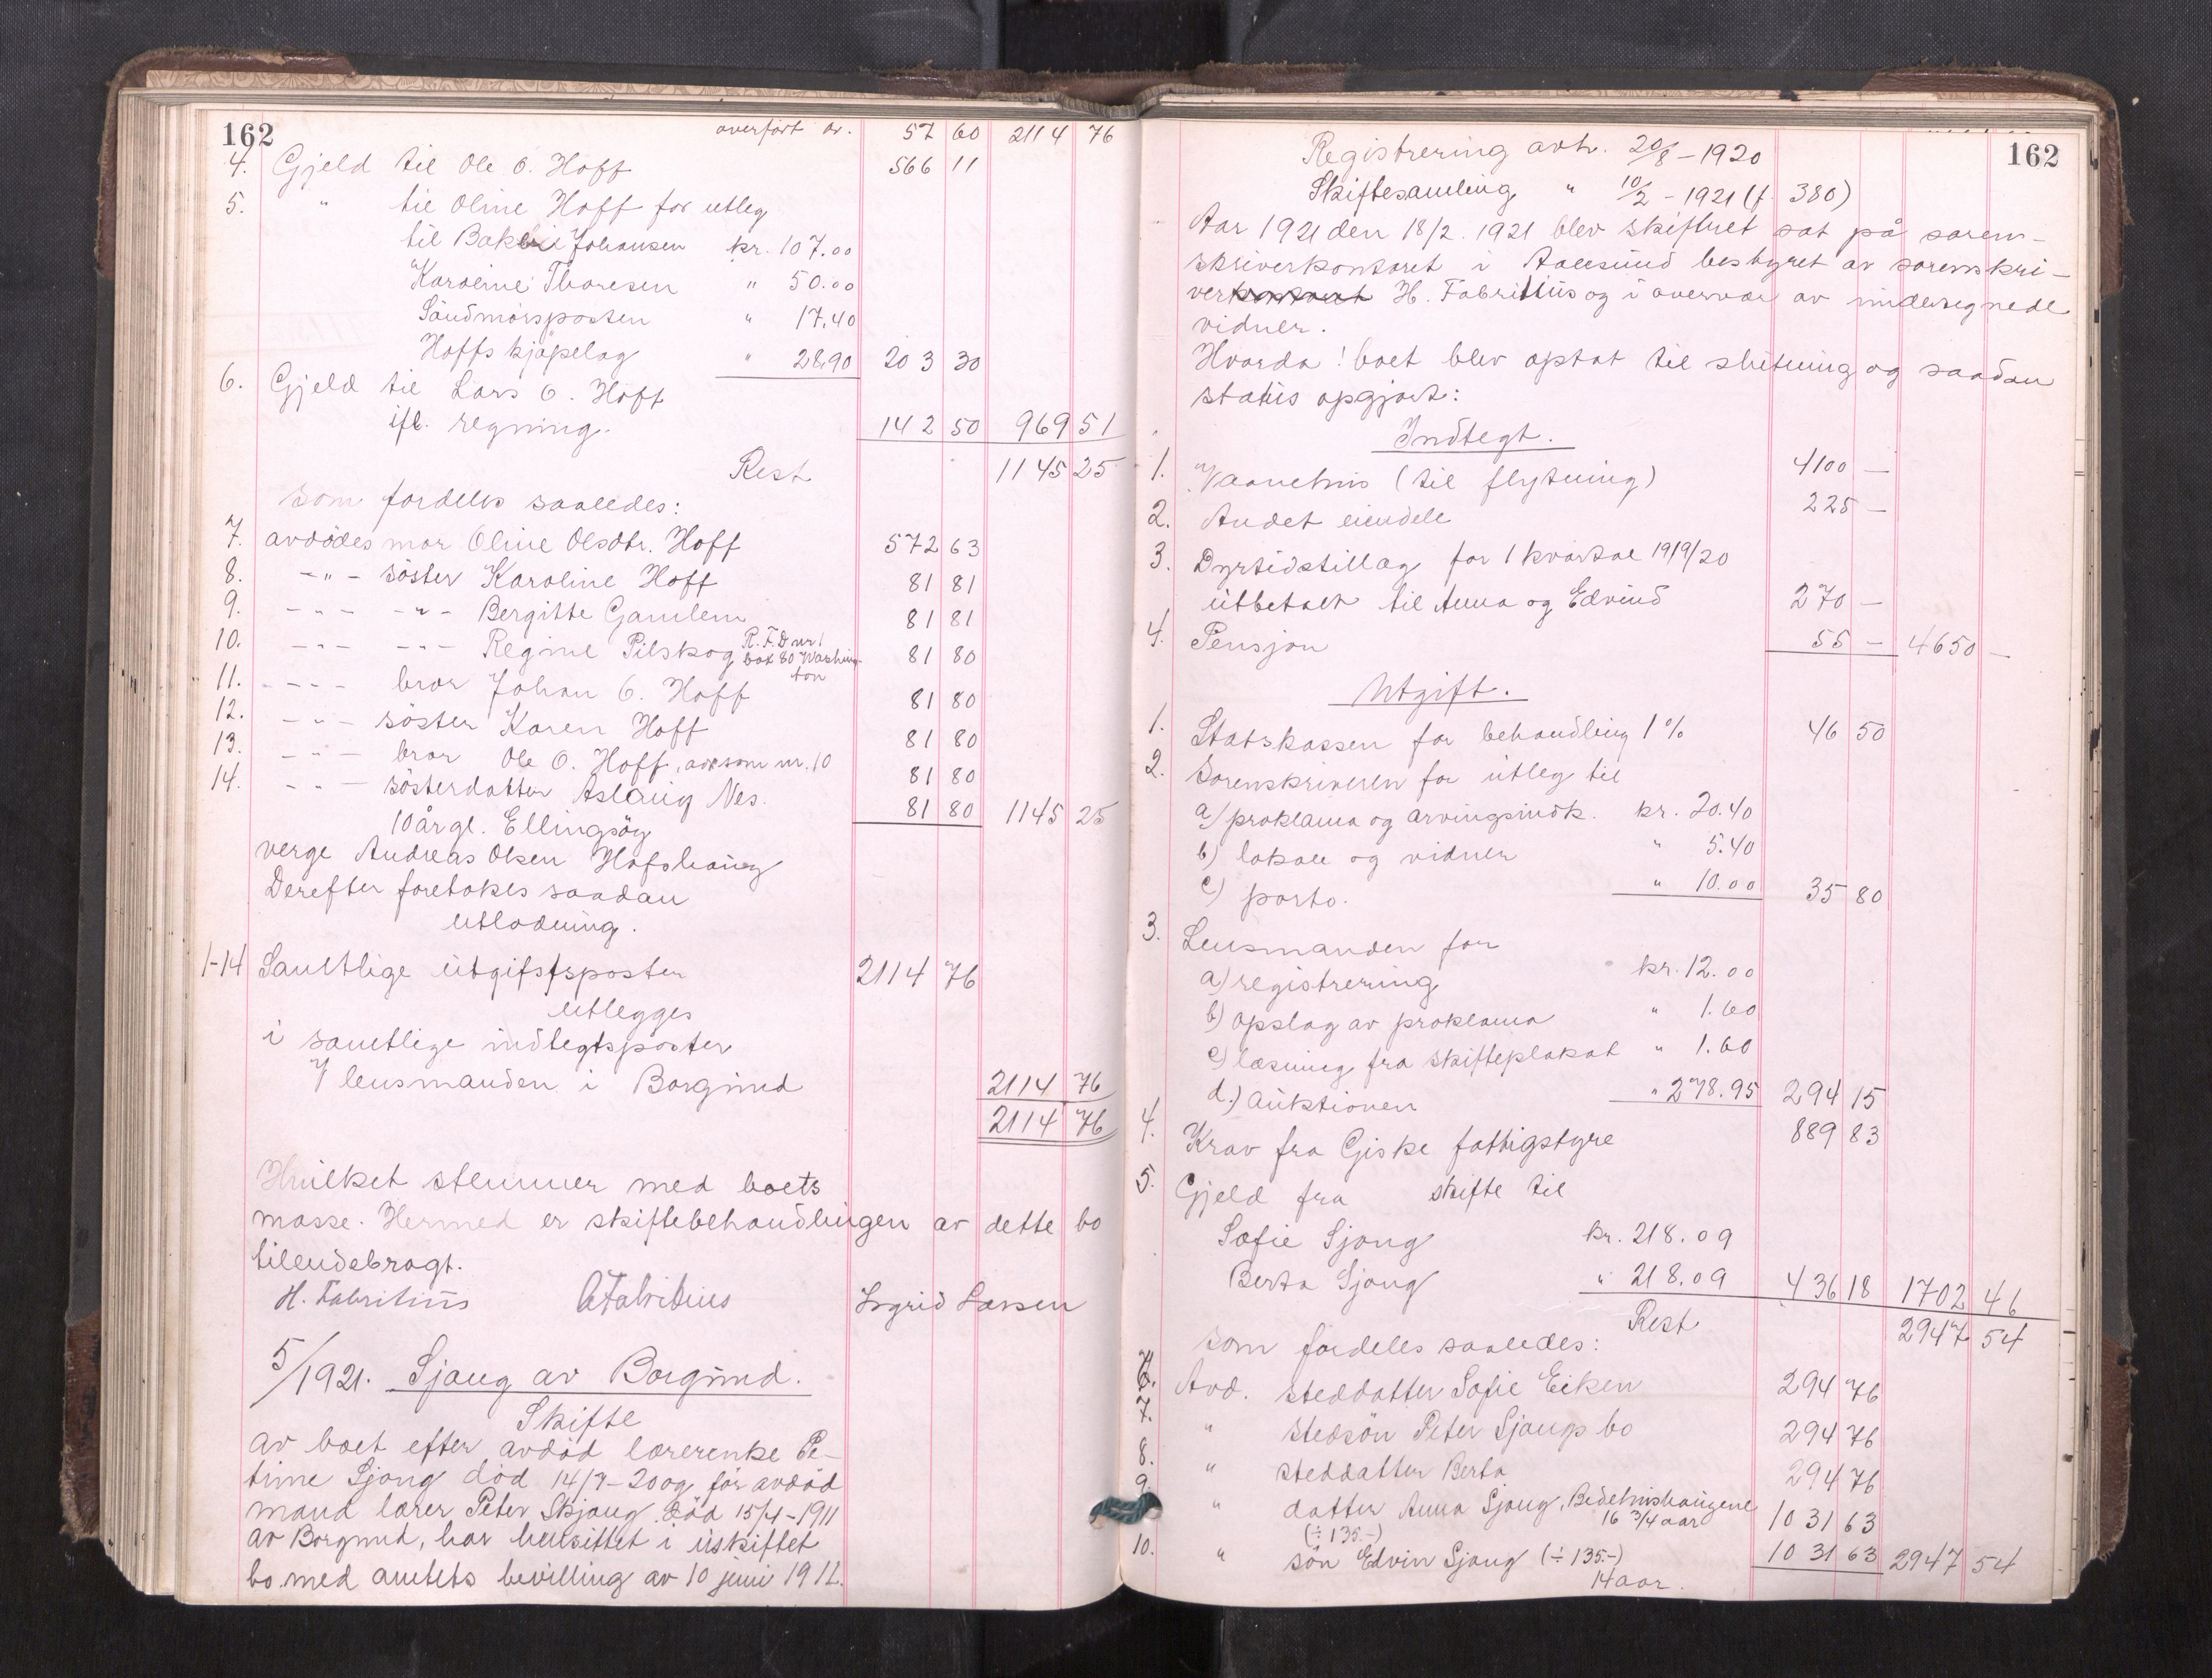 162
overført av. 57 60 2114 76
4. Gjeld til Ole O. Hoff 566 11
5. " til Oline Hoff for utleg
til Johansen kr. 107.00
Karoline Thoresen " 50.00
Söndmörsposten " 17.40
Hoffs kjøpelag " 28.90 203 30
6. Gjeld til Lars O. Hoff
ifl. regning. 142 50 969 51
Rest 1145 25
som fordeles saaledes:
7. avdödes mor Oline Olsdtr. Hoff 572 63
8. -"- söster Karoline Hoff 81 81
9. -"- -"- Bergitte Gamlem 81 81
10. -"- -"- Regine Pilskog R.F.D nr 1 box 80 Washington 81 80
11. -"- bror Johan O. Hoff 81 80
12. -"- söster Karen Hoff 81 80
13. -"- bror Ole O. Hoff, adr som nr. 10 81 80
14. -"- sösterdatter Aslaug Nes. 81 80 1145 25
10 år gl. Ellingsöy
verge Andreas Olsen Hofshaug
Derefter foretokes saadan
utlodning.
1-14 Samtlige utgiftsposter 2114 76
utlegges
i samtlige indtegtsposter
V lensmanden i Borgund 2114 76
2114 76
Hvilket stemmer med boets
masse. Hermed er skiftebehandlingen av dette bo
tilendebragt.
H. Fabritius Fabritius Ingrid Larsen
5/1921. Sjong av Borgund.
Skifte
av boet efter avdöd lærerenke Pe-
trine Sjong död 14/7-20 og för avdöd
mand lærer Peter Skjong död 15/4-1911
av Borgund, har hensittet i uskiftet
bo med amtets bevilling av 10 juni 1911.
162
Registrering avh. 20/8-1920
Skiftesamling " 10/2-1921 (f. 380)
Aar 1921 den 18/2. 1921 blev skifteret sat på soren-
skriverkontoret i Aalesund bestyret av sorenskri-
ver H. Fabritius og i overvær av undertegnede
vidner.
Hvorda! boet blev optat til slutning og saadan
status opgjort:
Indtegt.
1. Vaanehus (til flytning) 4100 —
2. Andet eiendele 225 —
3. Dyrtidstillæg for 1 kvartal 1919/20
utbetalt til Anna og Edvind 270 —
4. Pensjon 55 — 4650 —
Utgift.
1. Statskassen for behandling 1% 46 50
2. Sorenskriveren for utleg til
a) proklama og arvingsindk. kr. 20.40
b) lokale og vidner " 5.40
c) porto. " 10.00 35 80
3. Lensmanden for
a) registrering kr. 12.00
b) opslag av proklama " 1.60
c) læsning fra skifteplakat " 1.60
d.) auktionen " 278.95 294 15
4. Krav fra Giske fattigstyre 889 83
5. Gjeld fra skifte til
Sofie Sjong kr. 218.09
Berta Sjong " 218.09 436 18 1702 46
Rest 2947 54
som fordeles saaledes:
6. Avd. steddatter Sofie Eiken 294 76
7. " stedsön Peter Sjongs bo 294 76
8. " steddatter Berta 294 76
9. " datter Anna Sjong, Bedehushaugene 1031 63
(÷ 135.-) 16 3/4 aar
10. " sön Edvin Sjong (÷ 135.-) 1031 63 2947 54
14 aar.